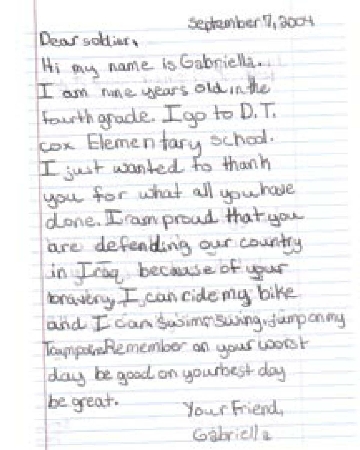 September 7, 2004
Dear soldier,
Hi my name is Gabriella.
I am nine years old in the
fourth grade. I go to D.T.
cox Elementary school.
I just wanted to thank
you for what all you have
done. I am proud that you
are defending our country
in Iraq. because of your
bravery, I can ride my bike
and I can swim, swing, jump on my
Remember on your worst
day be good on your best day
be great.
Your Friend,
Gabriella